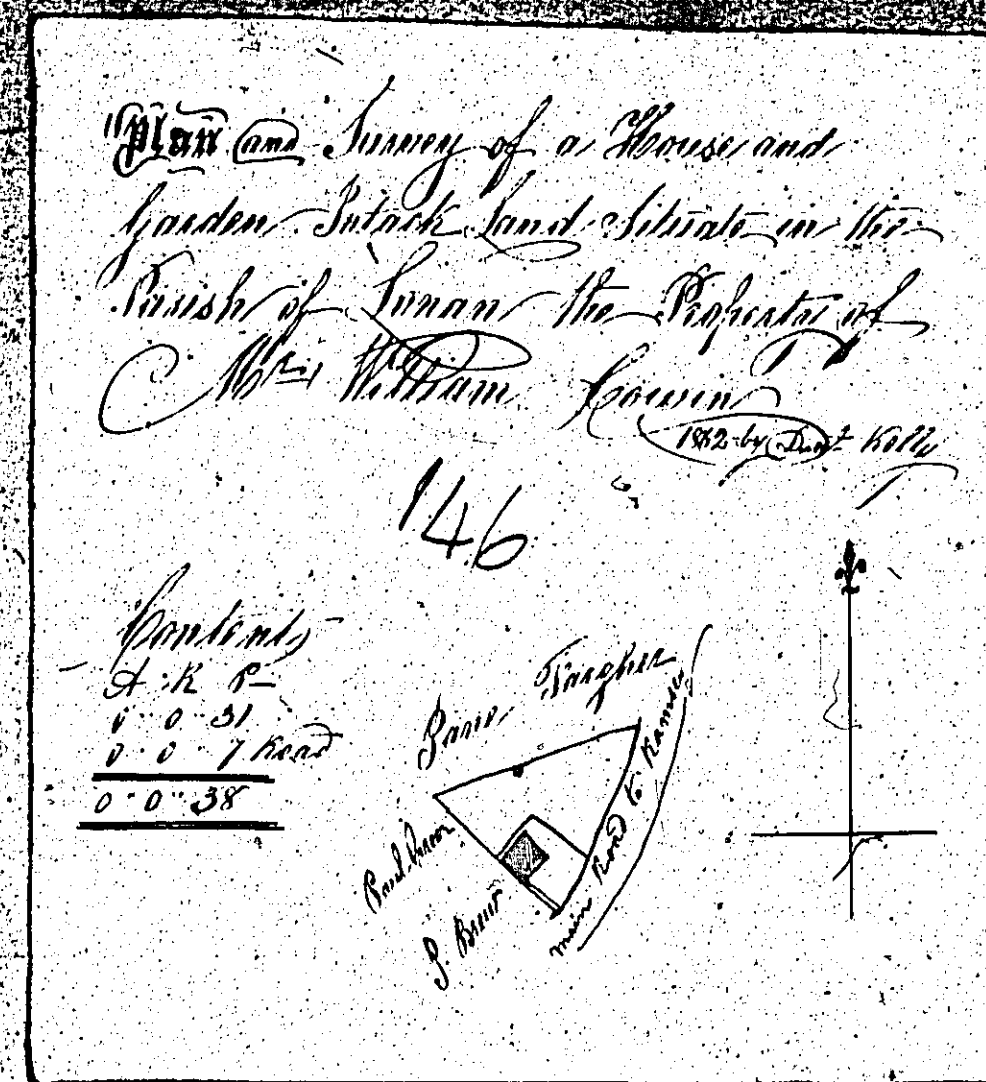 "Plan and Survey of a House and
Garden Intack Land Situate in the
Parish of Lonan the Property of
Mrs William Cowin
1862 by Kelly
146
Contents
A R P
0 0 31
0 0 7 Road
0 0 38
Fargher
main Road to Ramsey